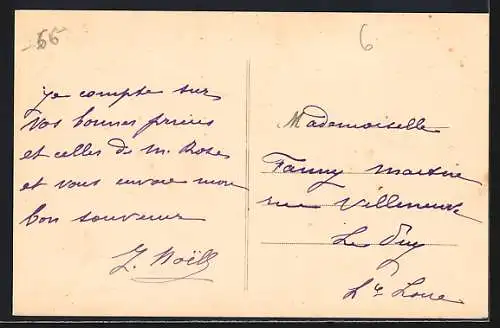 56
6
Je compte sur
vos bonnes prières
et celles de m. Roses
et vous envoie mon
bon souvenir
J. Noëll
Mademoiselle
Fanny Martine
rue Villeneuve
Le Puy
Hte Loire